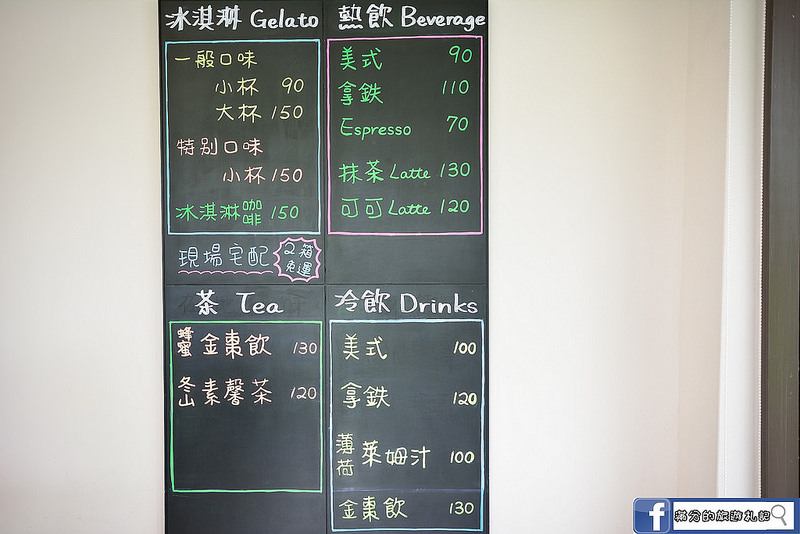 冰淇淋 Gelato
一般口味
小杯 90
大杯 150
特別口味
小杯 150
冰淇淋咖啡 150
現場宅配 2箱免運
熱飲 Beverage
美式 90
拿鐵 110
Espresso 70
抹茶 Latte 130
可可 Latte 120
茶 Tea
蜂蜜金棗飲 130
冬山素馨茶 120
冷飲 Drinks
美式 100
拿鐵 120
薄荷萊姆汁 100
金棗飲 130
f 滿分的旅遊札記